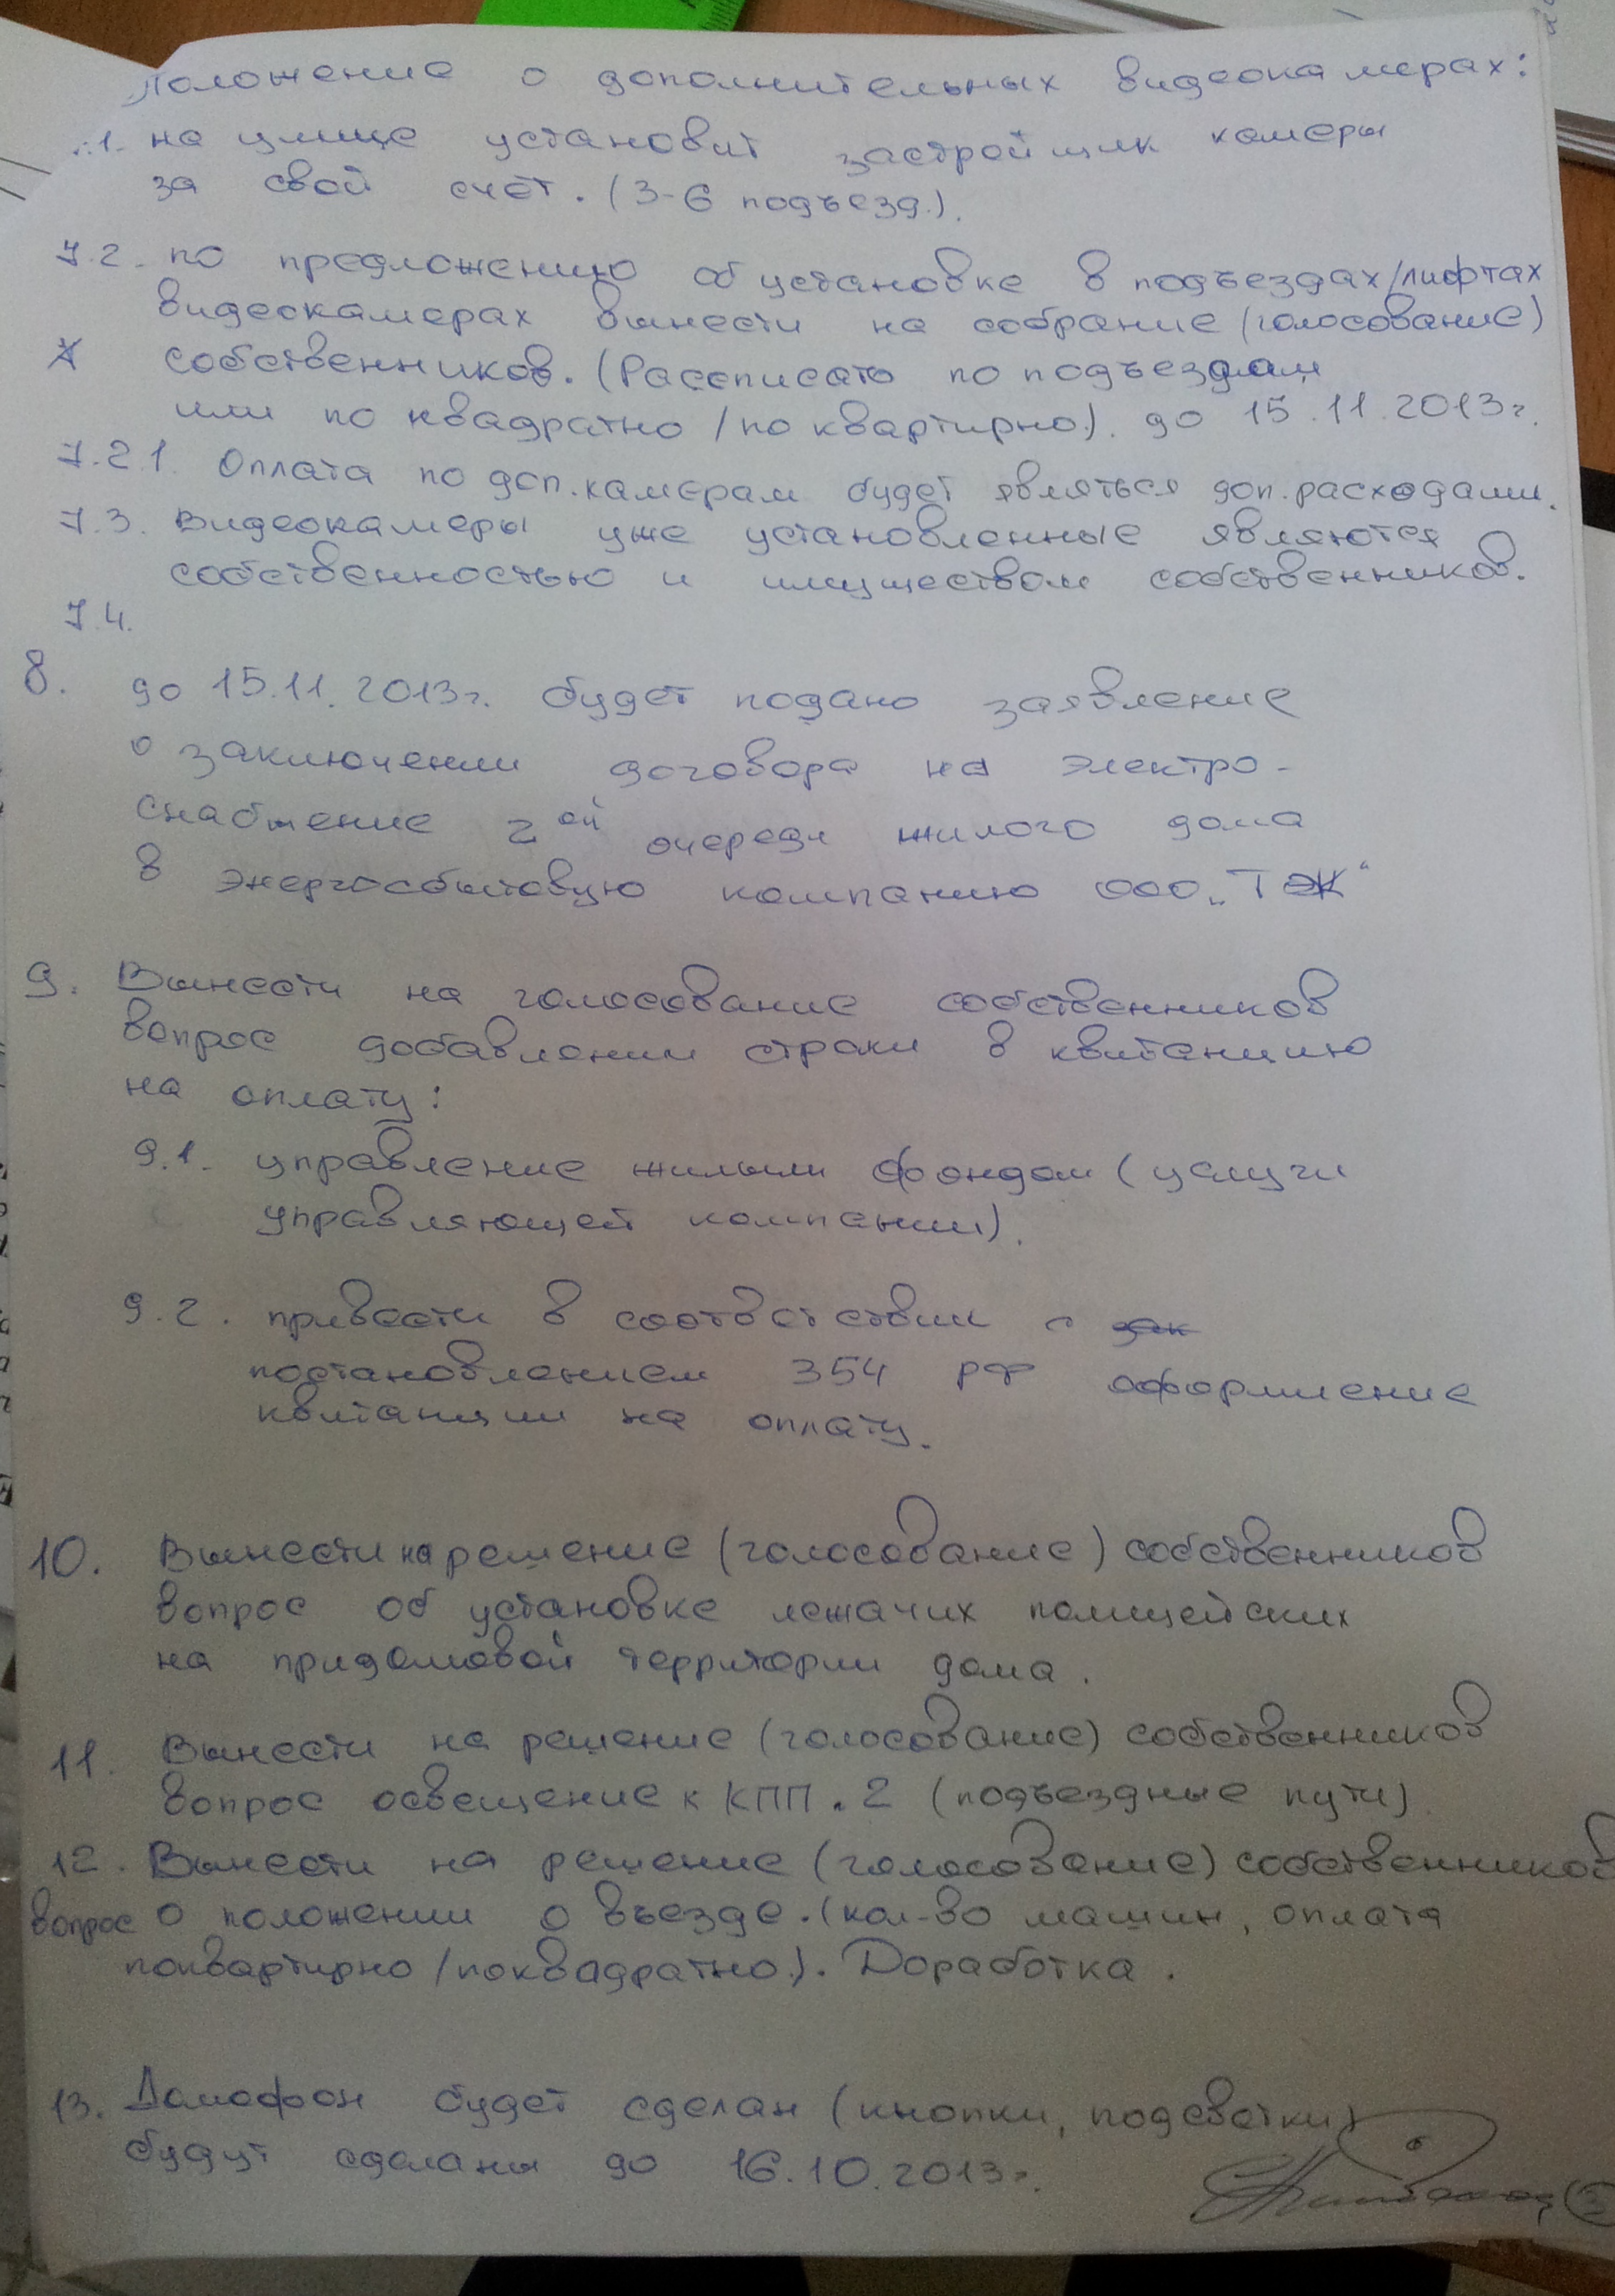 Положение о дополнительных видеокамерах:
.1. на улице установит застройщик камеры
за свой счёт. (3-6 подъезд.).
7.2. по предложению об установке в подъездах/лифтах
видеокамерах вынести на собрание (голосование)
собственников. (Рассписать по подъездам
или по квадратно / по квартирно.). до 15.11.2013г.
7.2.1. Оплата по доп. камерам будет являться доп. расходами.
7.3. Видеокамеры уже установленные являются
собственностью и имуществом собственников.
7.4.
8. до 15.11.2013г. будет подано заявление
о заключении договора на электро-
снабжение 2ой очереди жилого дома
в энергосбытовую компанию ООО „ТЭК“
9. Вынести на голосование собственников
вопрос добавлении строки в квитанцию
на оплату:
9.1. управление жилым фондом (услуги
управляющей компании).
9.2. привести в соответствии с зак
постановлением 354 РФ оформление
квитанции на оплату.
10. Вынести на решение (голосование) собственников
вопрос об установке лежачих полицейских
на придомовой территории дома.
11. Вынести на решение (голосование) собственников
вопрос освещение к КПП. 2 (подъездные пути)
12. Вынести на решение (голосование) собственников
вопрос о положении о въезде. (кол-во машин, оплата
поквартирно / поквадратно.). Доработка.
13. Домофон будет сделан (кнопки, подсветки)
будут сделаны до 16.10.2013г.